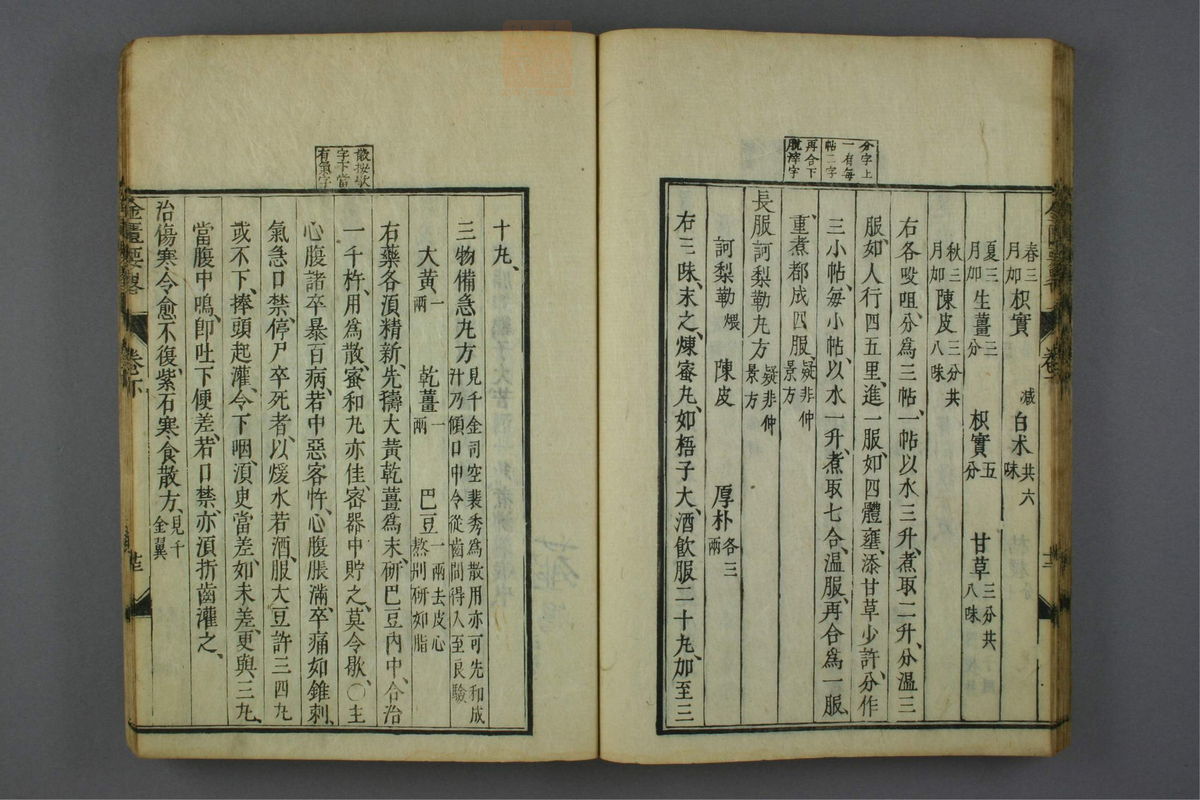 分字上
一有每
帖二字
再合下
脫滓字
春三月加枳實 減白朮共六味
夏三月加生薑三分 枳實五分 甘草三分共八味
秋三月加陳皮三分共八味
右各㕮咀、分爲三帖、一帖以水三升、煮取二升、分溫三
服、如人行四五里、進一服、如四體壅、添甘草少許、分作
三小帖、每小帖以水一升、煮取七合、溫服、再合爲一服、
重煮都成四服、疑非仲景方
長服訶梨勒丸方疑非仲景方
訶梨勒煨 陳皮 厚朴各三兩
右三味、末之、煉蜜丸、如梧子大、酒飲服二十丸、加至三
十丸、
散按欬
字下當
有氣字
三物備急丸方見千金司空裴秀爲散用亦可先和成汁乃傾口中令從齒間得入至良驗
大黃一兩 乾薑一兩 巴豆一兩去皮心熬別研如脂
右藥各須精新、先擣大黃乾薑爲末、研巴豆內中、合治
一千杵、用爲散、蜜和丸亦佳、密器中貯之、莫令歇、〇主
心腹諸卒暴百病、若中惡客忤、心腹脹滿、卒痛如錐刺、
氣急口禁、停尸卒死者、以煖水若酒、服大豆許三四丸
或不下、捧頭起灌、令下咽、須臾當差、如未差、更與三丸、
當腹中鳴、卽吐下便差、若口禁、亦須折齒灌之、
治傷寒令愈不復、紫石寒食散方、見千金翼
金匱要畧 卷下